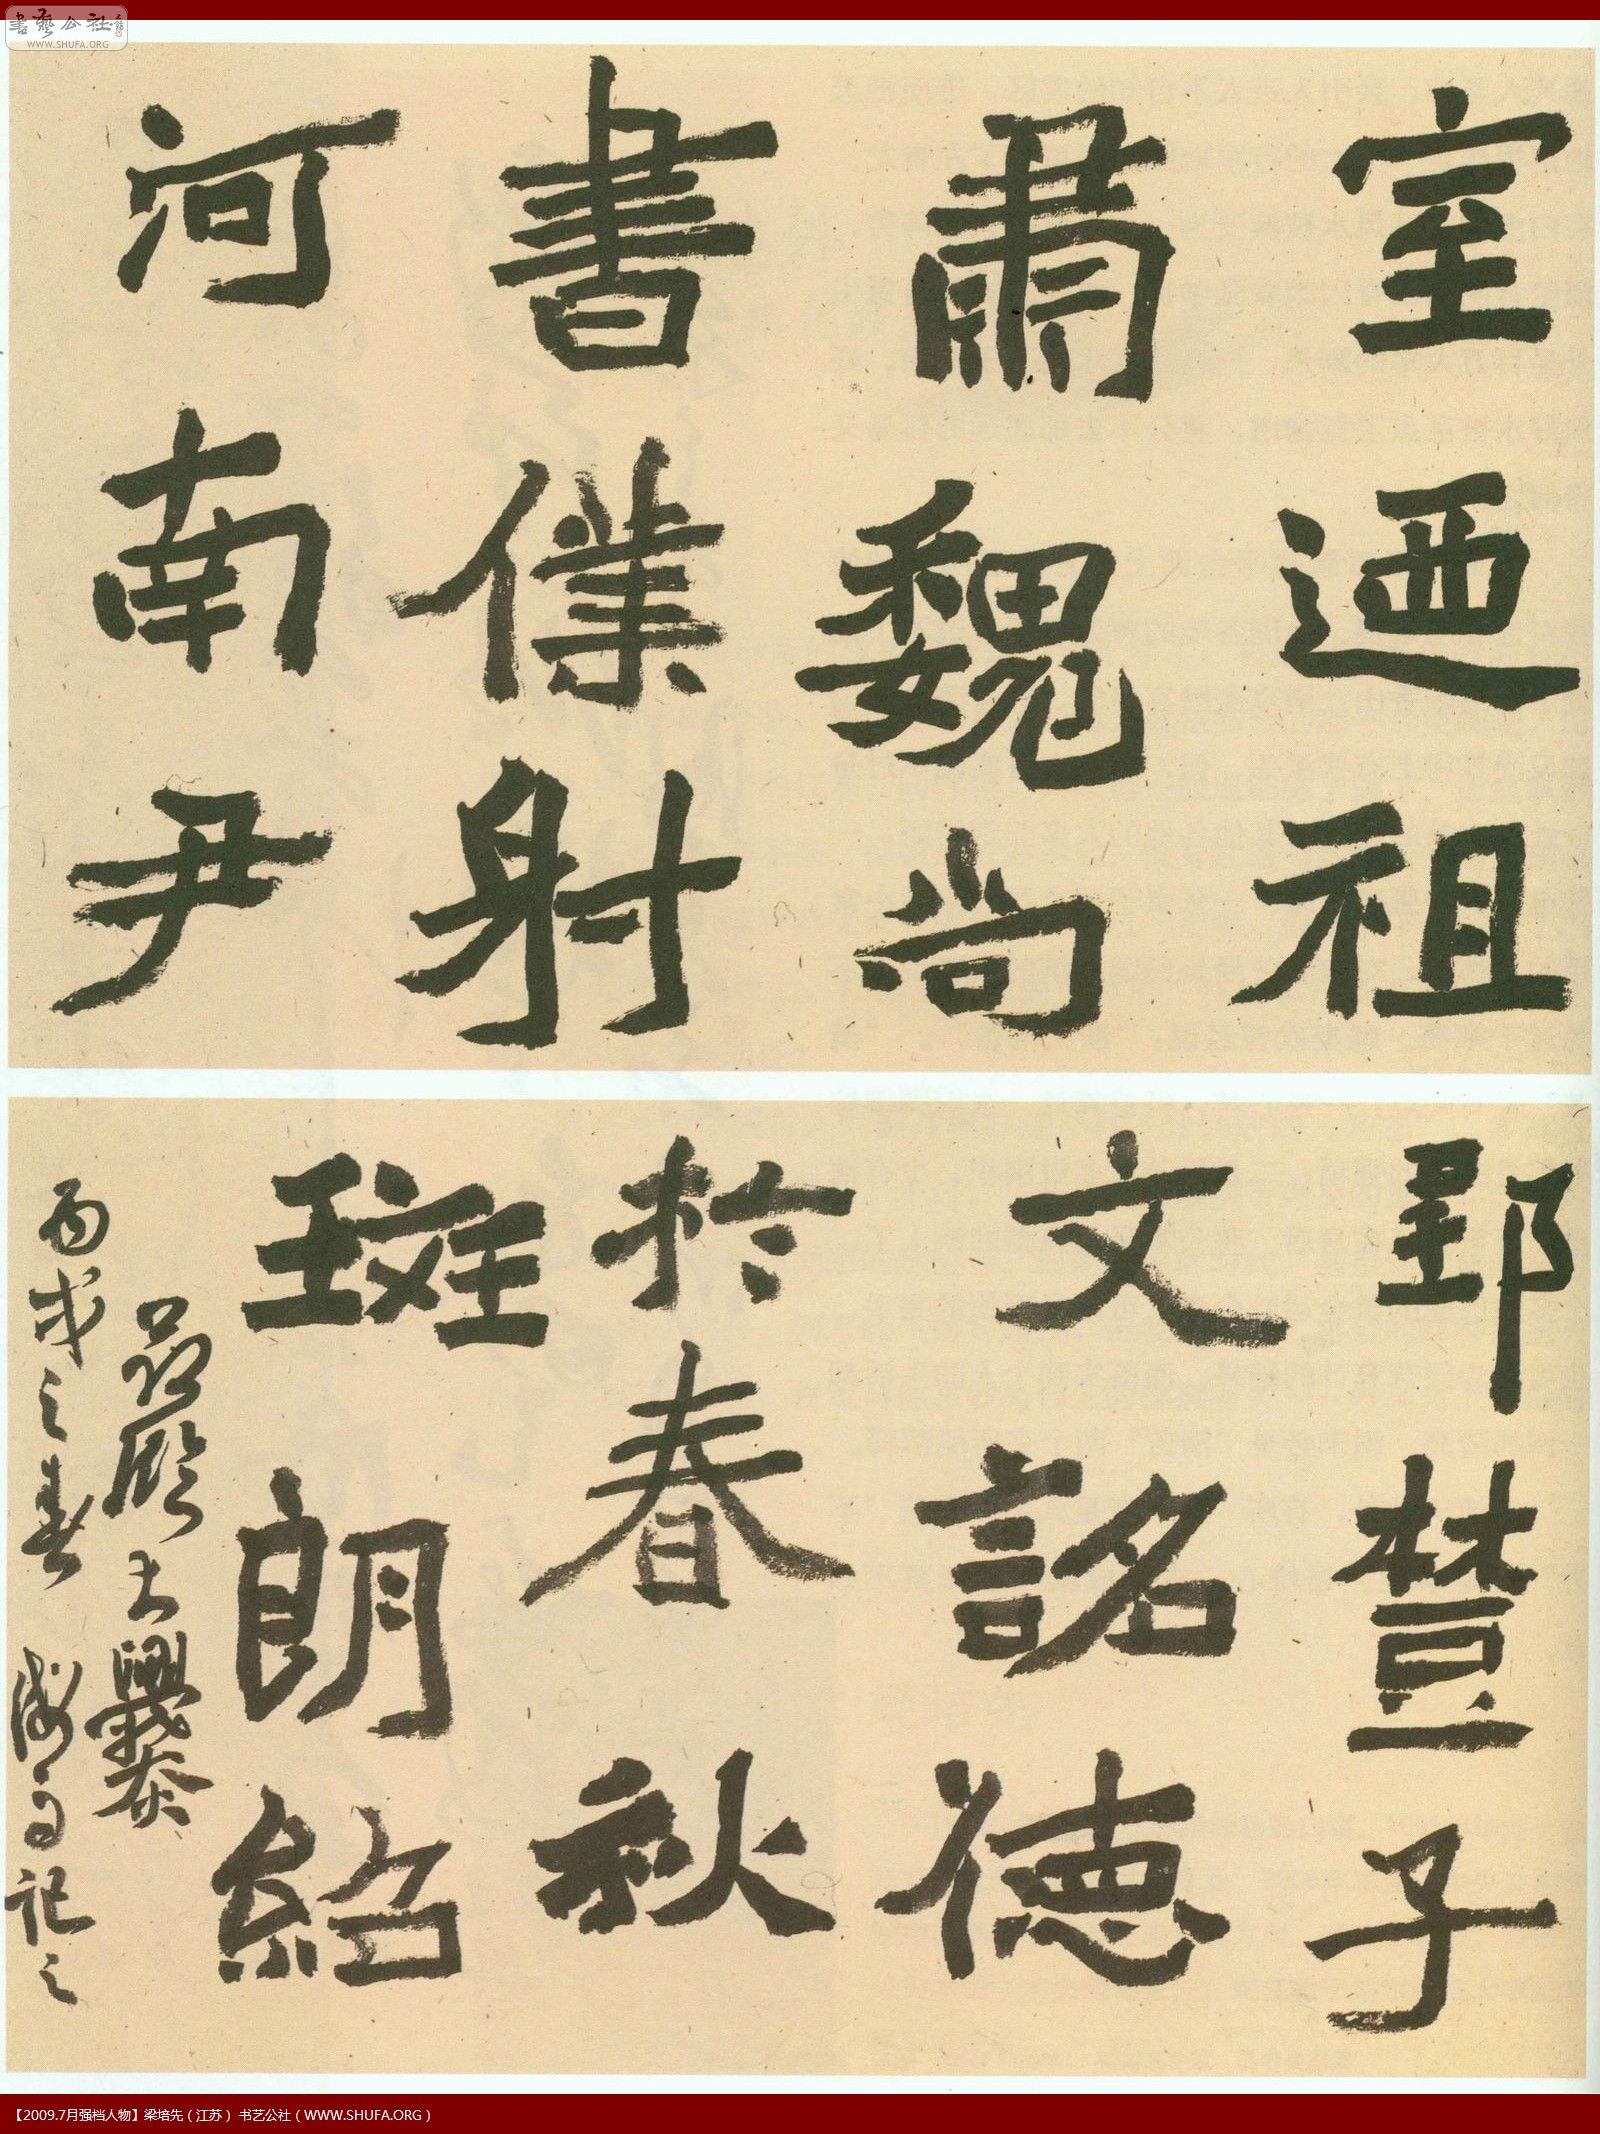 書藝公社
WWW.SHUFA.ORG
室迺祖
肅魏尚
書僕射
河南尹
郢楚子
文詺德
於春秋
斑朗紹
臨大爨
丙戌之春 記之
【2009.7月强档人物】梁培先（江苏） 书艺公社（WWW.SHUFA.ORG）